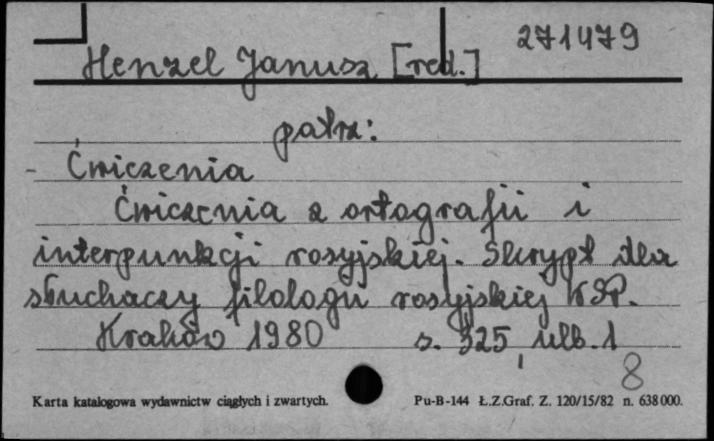 271479
Henzel Janusz [red.]
patrz:
- Ćwiczenia
Ćwiczenia z ortografii i
interpunkcji rosyjskiej. Skrypt dla
słuchaczy filologii rosyjskiej WSP.
Kraków 1980 s. 325, nlb. 1
8
Karta katalogowa wydawnictw ciągłych i zwartych. Pu-B-144 Ł.Z.Graf. Z. 120/15/82 n. 638000.